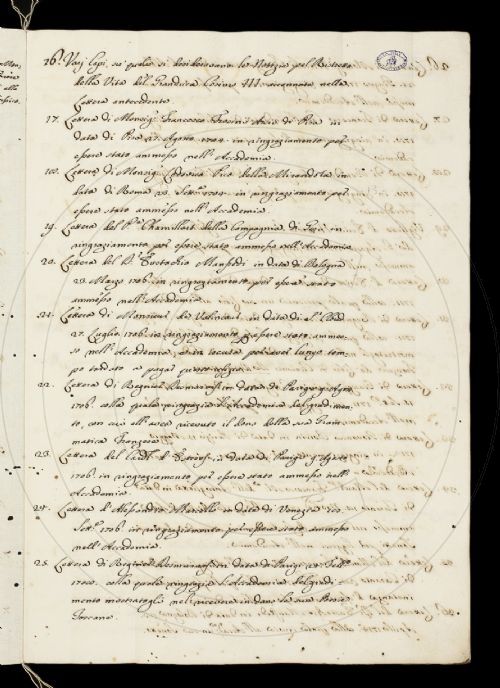 26. Varj Capi, su' quali si desiderarano le Notizie pel Ristretto
della Vita del Granduca Cosimo III. accennate nella
Lettera antecedente.
17. Lettera di Monsig.r Francesco Frosini Arciv. di Pisa in
data di Pisa 27. Agosto 1704. in ringraziamento per
essere stato ammesso nell'Accademia.
Lettera di Monsig.r Lodovico Pico della Mirandola in
data di Roma Sett.e 1704. in ringraziamento per
essere stato ammesso nell'Accademia.
19. Lettera del P. Chamillart della Compagnia di Gesù in
ringraziamento per essere stato ammesso nell'Accademia.
20. Lettera del D. Eustachio Manfredi in data di Bologna
Marzo 1706. in ringraziamento per essere stato
ammesso nell'Accademia.
21. Lettera di Monsieur de Valincourt in data di
27. Luglio 1706. in ringraziamento essere stato ammes-
so nell'Accademia, e in lungo tem-
po tardato a
22. Lettera di Regnier Desmarais in data di Parigi Agto
1706. colla quale ringrazia l'Accademia del gradimen-
to, con cui ha ricevuto il dono della sua Gram-
matica Franzese.
23. Lettera del in data di Parigi Agto
1706. in ringraziamento per essere stato ammesso nell'
Accademia.
24. Lettera d'Alessandro Marcello in data di Venezia
Sett.e 1706. in ringraziamento per essere stato ammesso
nell'Accademia.
25. Lettera di Regnier Desmarais in data di Parigi
colla quale ringrazia l'Accademia del gradi-
mento mostratogli nel ricevere in dono le sue Poesie
Toscane.